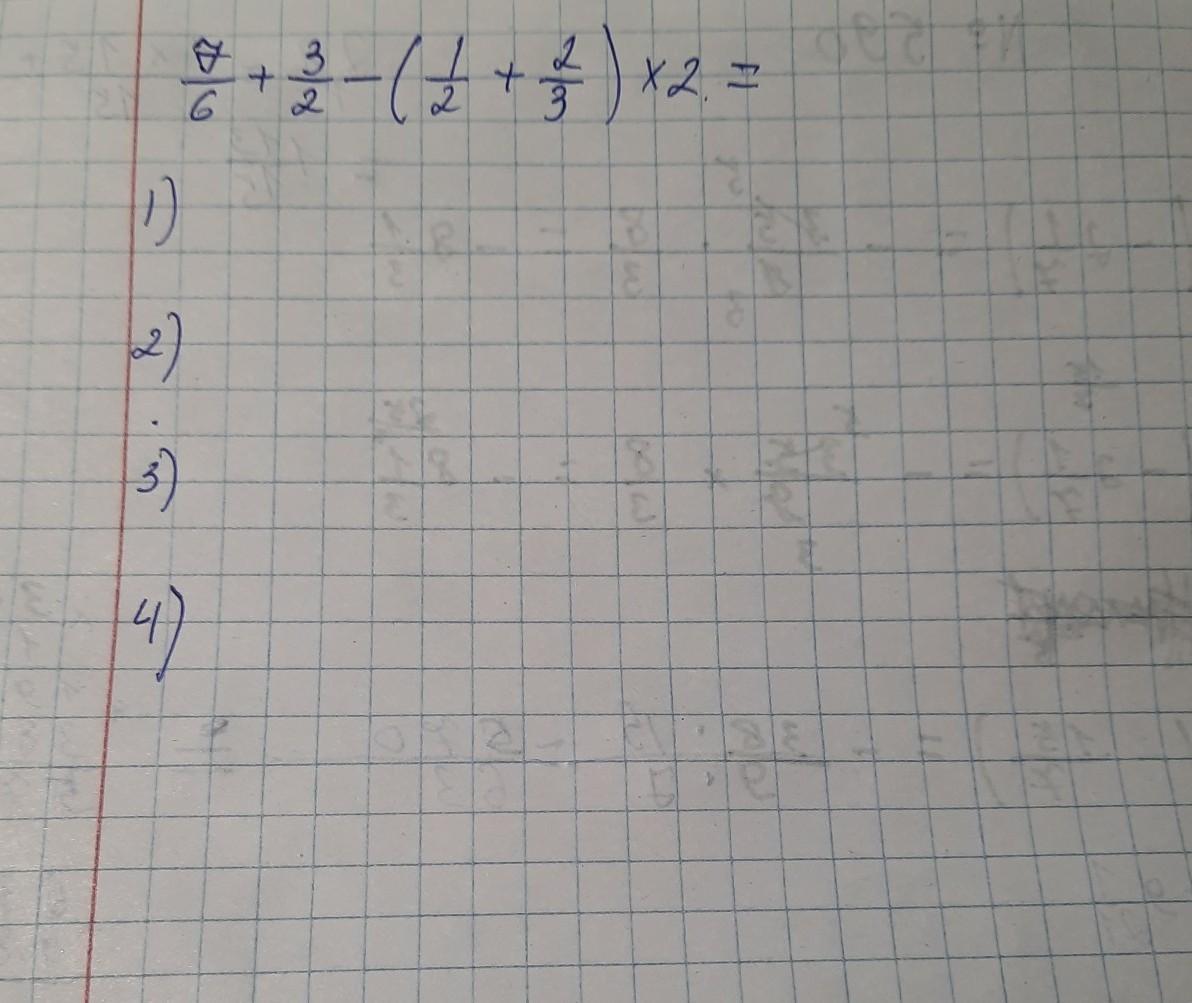 7/6 + 3/2 - (1/2 + 2/3) × 2. =
1)
2)
3)
4)